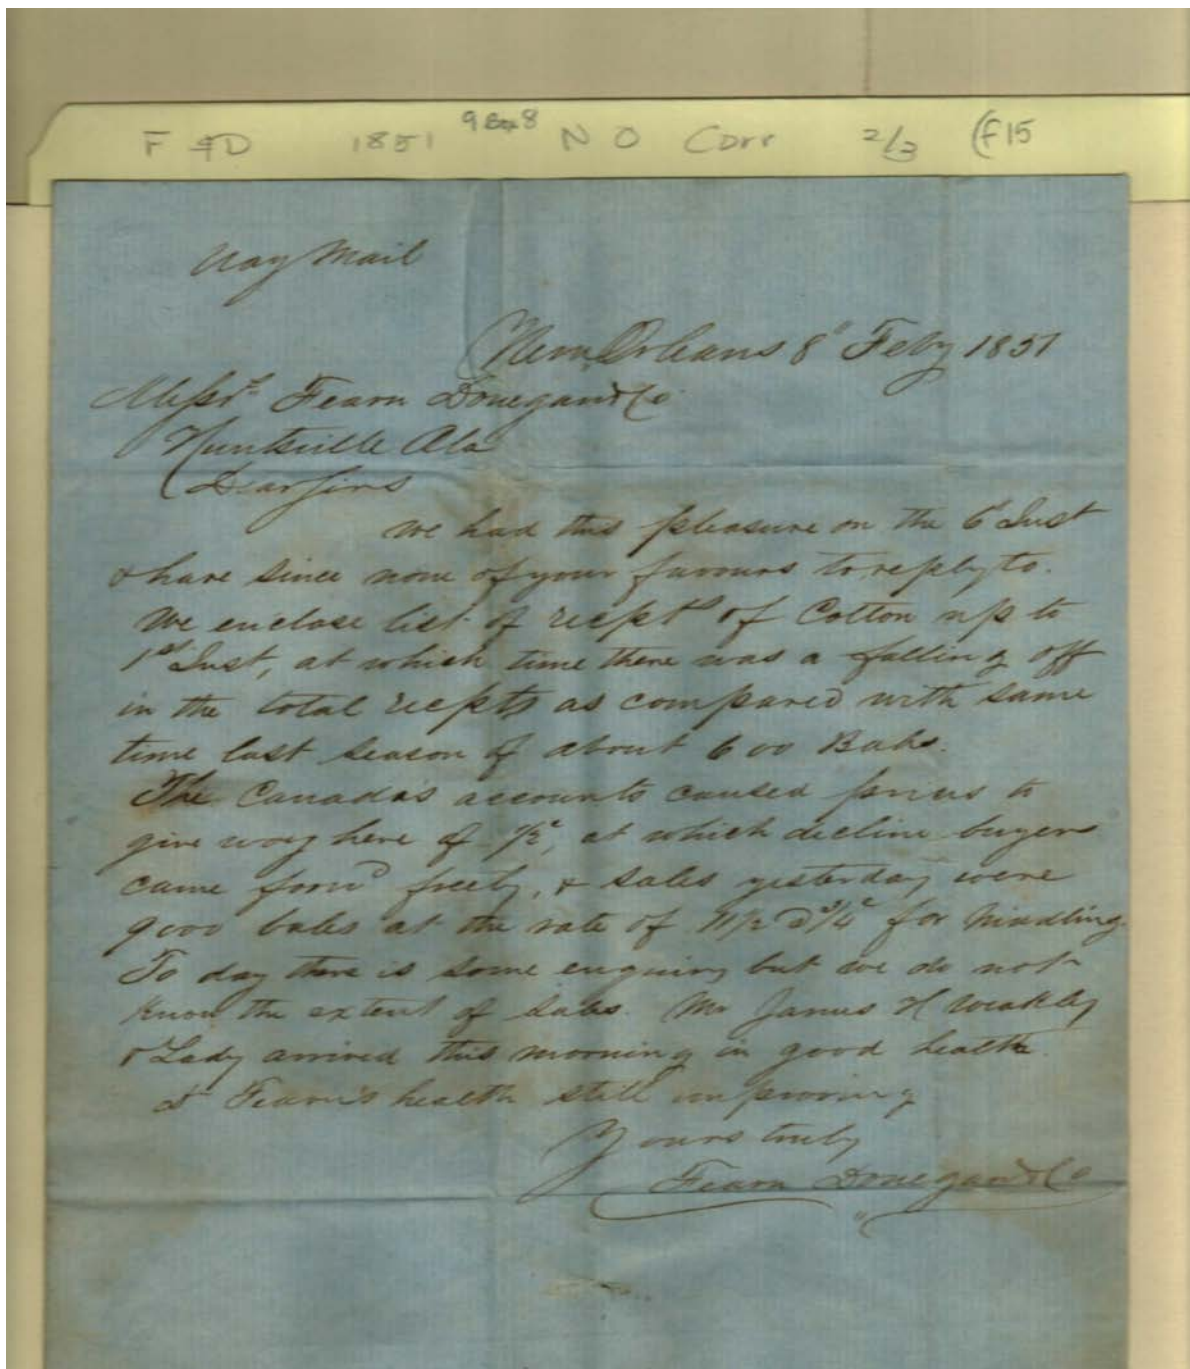 F & D 1851 9 Box 8 N O Corr 2/3 (F15
Way Mail
New Orleans 8" Feby 1851
Messrs Fearn Donegan & Co
Huntsville Ala
Dear Sirs
We had this pleasure on the 6" Inst
& have since none of your favours to reply to.
We enclose list of recpts of Cotton up to
1st Inst, at which time there was a falling off
in the total recpts as compared with same
time last season of about 600 Bales.
The Canada's accounts caused prices to
give way here of 1/2c, at which decline buyers
came forwd freely, & sales yesterday were
9000 bales at the rate of 11 1/2 @ 3/4c for Middling.
To day there is some enquiry but we do not
know the extent of sales. Mr James H Weakley
& Lady arrived this morning in good health.
Dr Fearn's health still improving
Yours truly
Fearn Donegan & Co